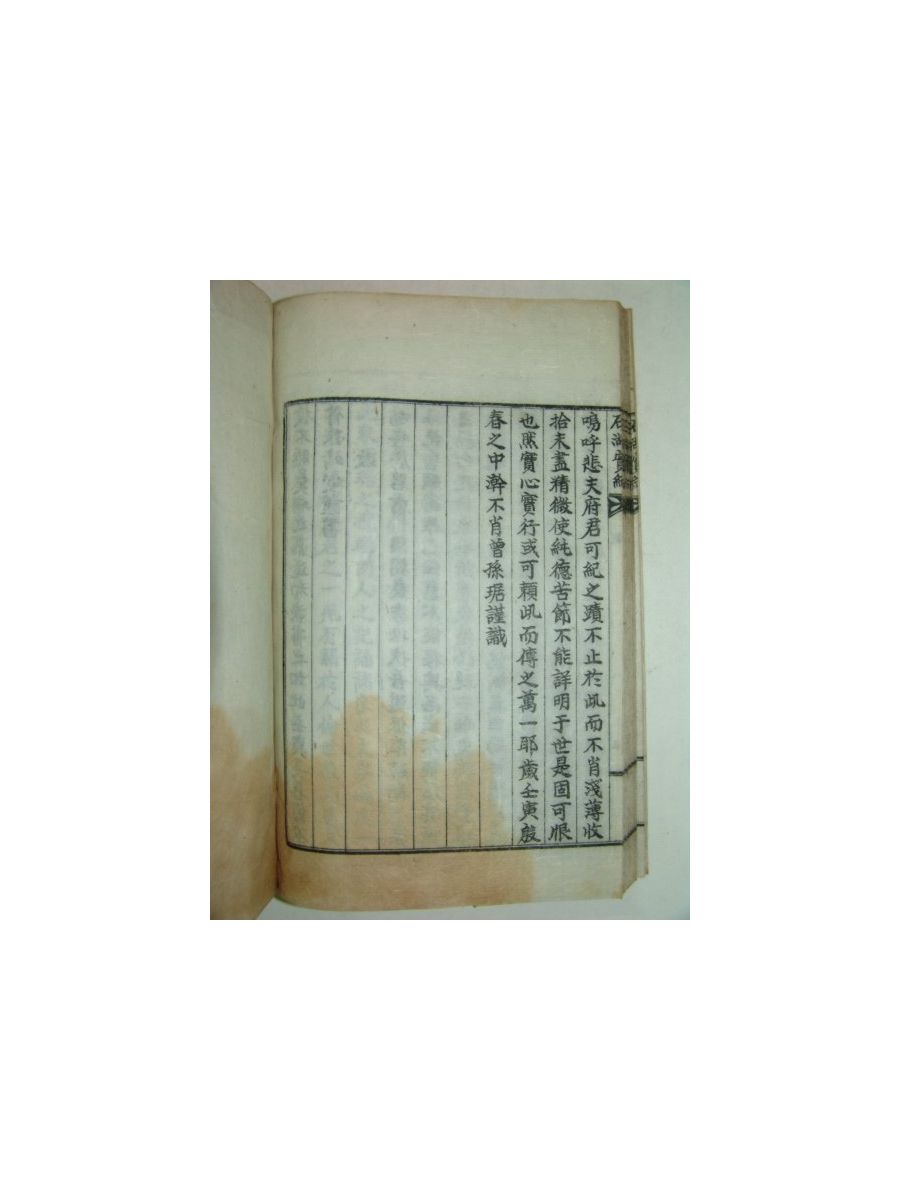 石湖實紀
嗚呼悲夫府君可紀之蹟不止於此而不肖淺薄收
拾未盡精微使純德苦節不能詳明于世是固可恨
也然實心實行或可賴此而傳之萬一耶歲壬寅殷
春之中澣不肖曾孫琚謹識